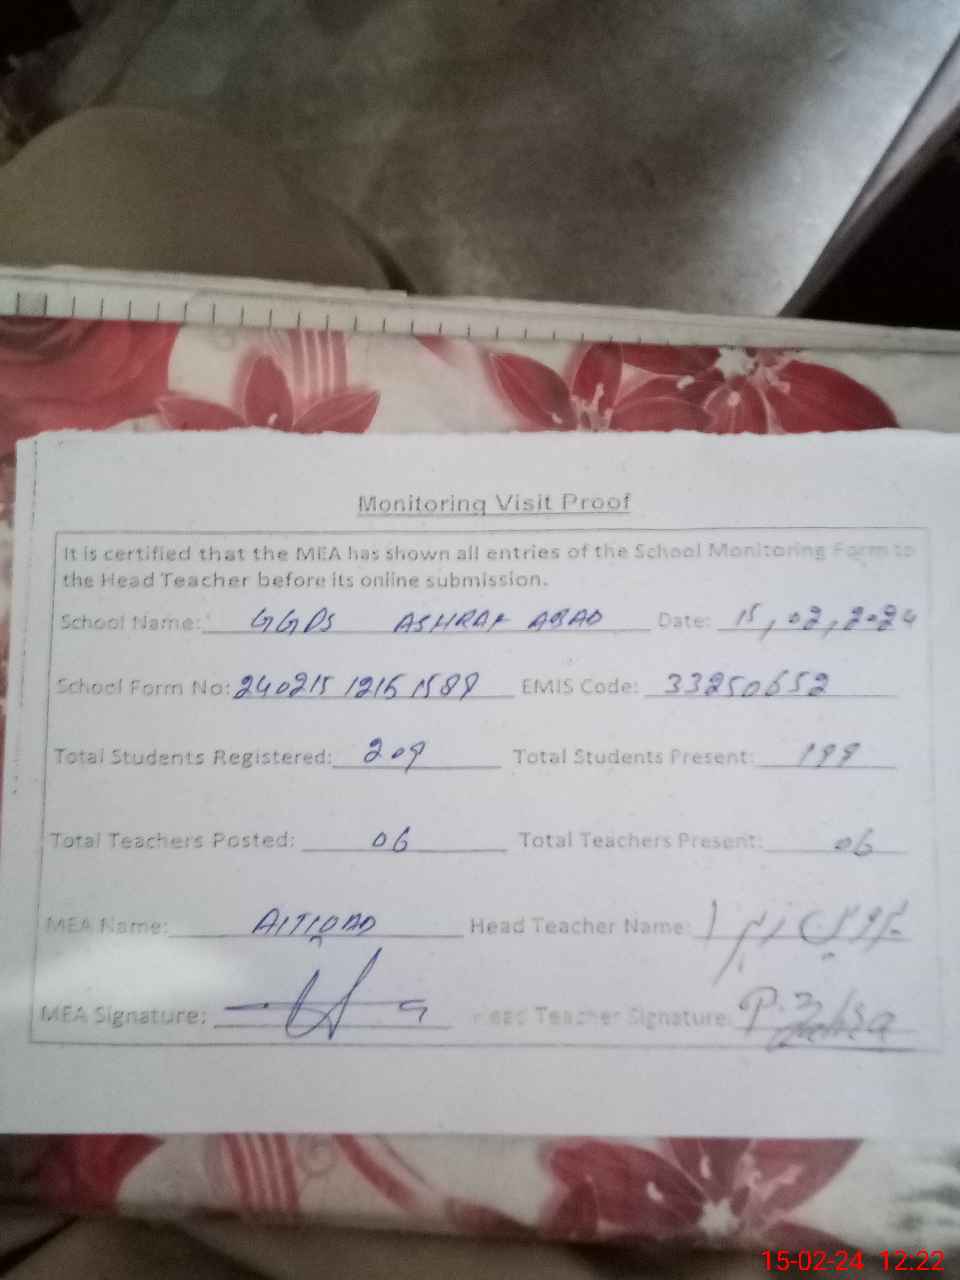 Monitoring Visit Proof
It is certified that the MEA has shown all entries of the School Monitoring Form to
the Head Teacher before its online submission.
School Name: GGPS ASHRAF ABAD Date: 15,02,2024
School Form No: EMIS Code: 33250652
Total Students Registered: 209 Total Students Present: 199
Total Teachers Posted: 06 Total Teachers Present: 06
MEA Name: Head Teacher Name:
MEA Signature: Head Teacher Signature: P. Zahra
15-02-24 12:22